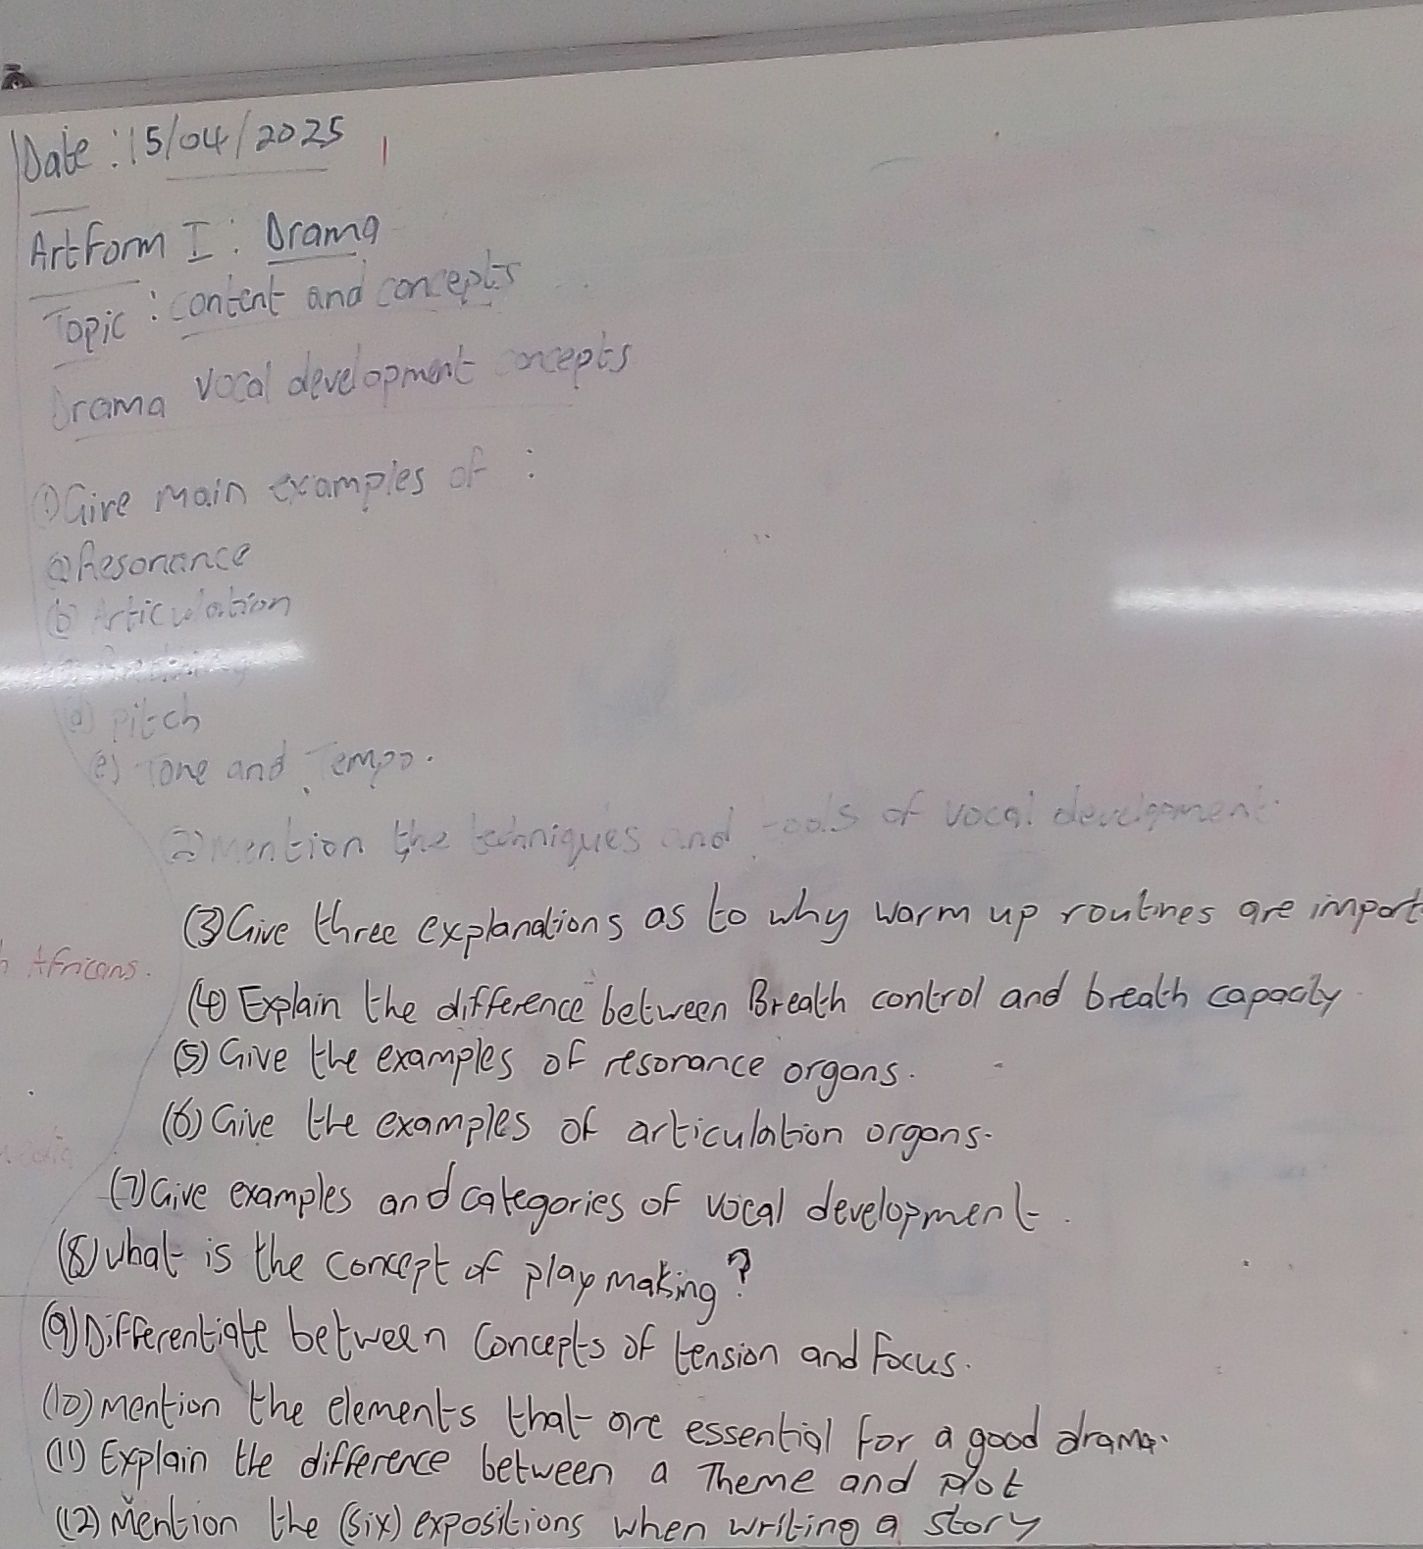 Date : 15/04/2025
Art Form I : Drama
Topic : content and concepts
Drama vocal development concepts
(1) Give main examples of :
(a) Resonance
(b) Articulation
(d) pitch
(e) Tone and Tempo.
(2) Mention the techniques and tools of vocal development.
(3) Give three explanations as to why warm up routines are import
Africans.
(4) Explain the difference between Breath control and breath capacity
(5) Give the examples of resonance organs.
(6) Give the examples of articulation organs.
(7) Give examples and categories of vocal development.
(8) what is the concept of play making?
(9) Differentiate between concepts of tension and focus.
(10) mention the elements that are essential for a good drama.
(11) Explain the difference between a Theme and plot
(12) Mention the (six) expositions when writing a story